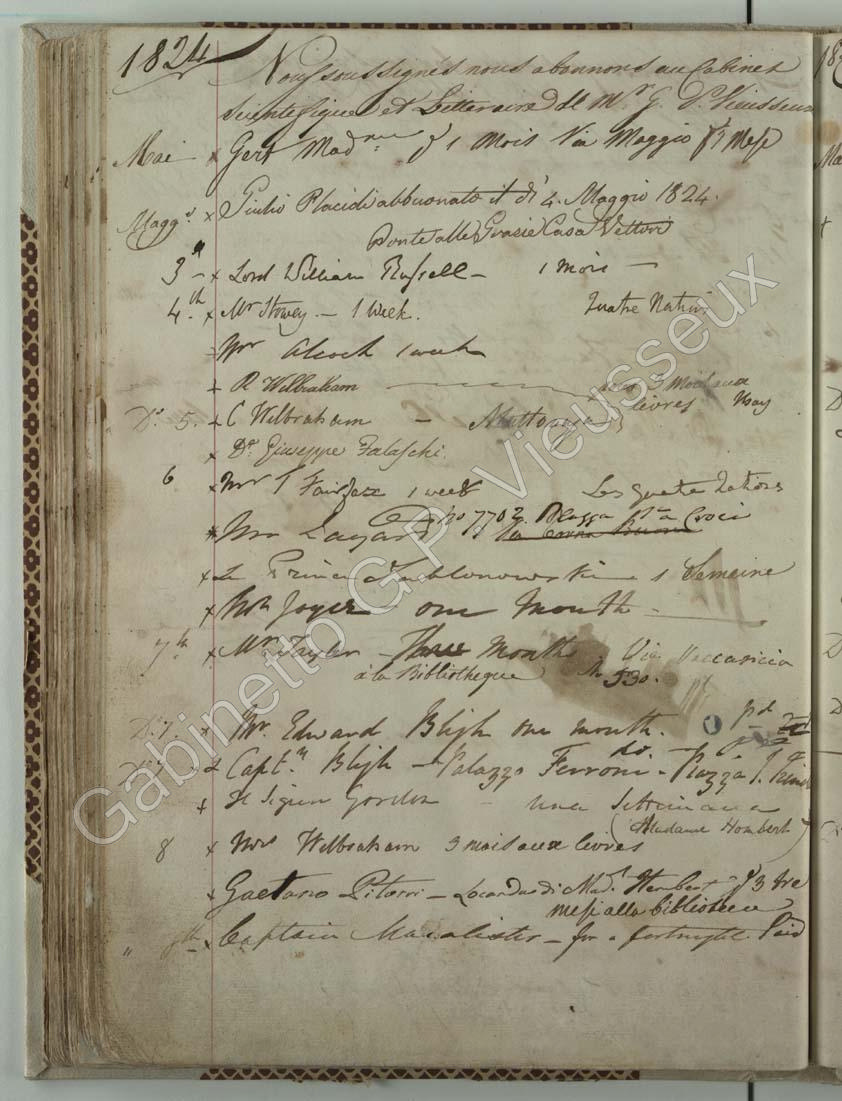 1824
Nous soussignés nous abonnons au Cabinet
Scientifique et Litteraire de Mr. G. P. Vieusseux
Mai x Gert Madme p 1 Mois Via Maggio
Maggo x Giulio Placidi abbuonato il dì 4. Maggio 1824.
Ponte alle Grazie Casa Vettori
3 x Lord William Russell - 1 mois -
4th x Mr Storey - 1 Week. Quatre Nations
Mr Alcock 1 week
R Wilbraham 3 Mois aux
livres May
Do 5. C Wilbraham -
x Dr. Giuseppe Falaschi.
6 x Mr T Fairfax 1 week Les quatre Nations
x Mr Layard No 7702. Piazza Sta Croce
x Le Prince Jablonowski 1 Semeine
x Mr Joyce one month -
7th x Mr Taylor - Three Months Via Vaccareccia
à la Bibliotheque No 530.
Do 7. x Mr. Edward Bligh one month. pd
Do 7 x Captn Bligh - do. Palazzo Ferroni - Piazza S. Trinita
x Il Signor Gordon - una Settimana
(Madame Hombert)
8 x Mrs Wilbraham 3 mois aux livres
x Gaetano Pitorri - Locanda di Mad. Hembert p 3 tre
mesi alla biblioteca
" 8th x Captain Macalister - for a fortnight Paid
Gabinetto G.P. Vieusseux